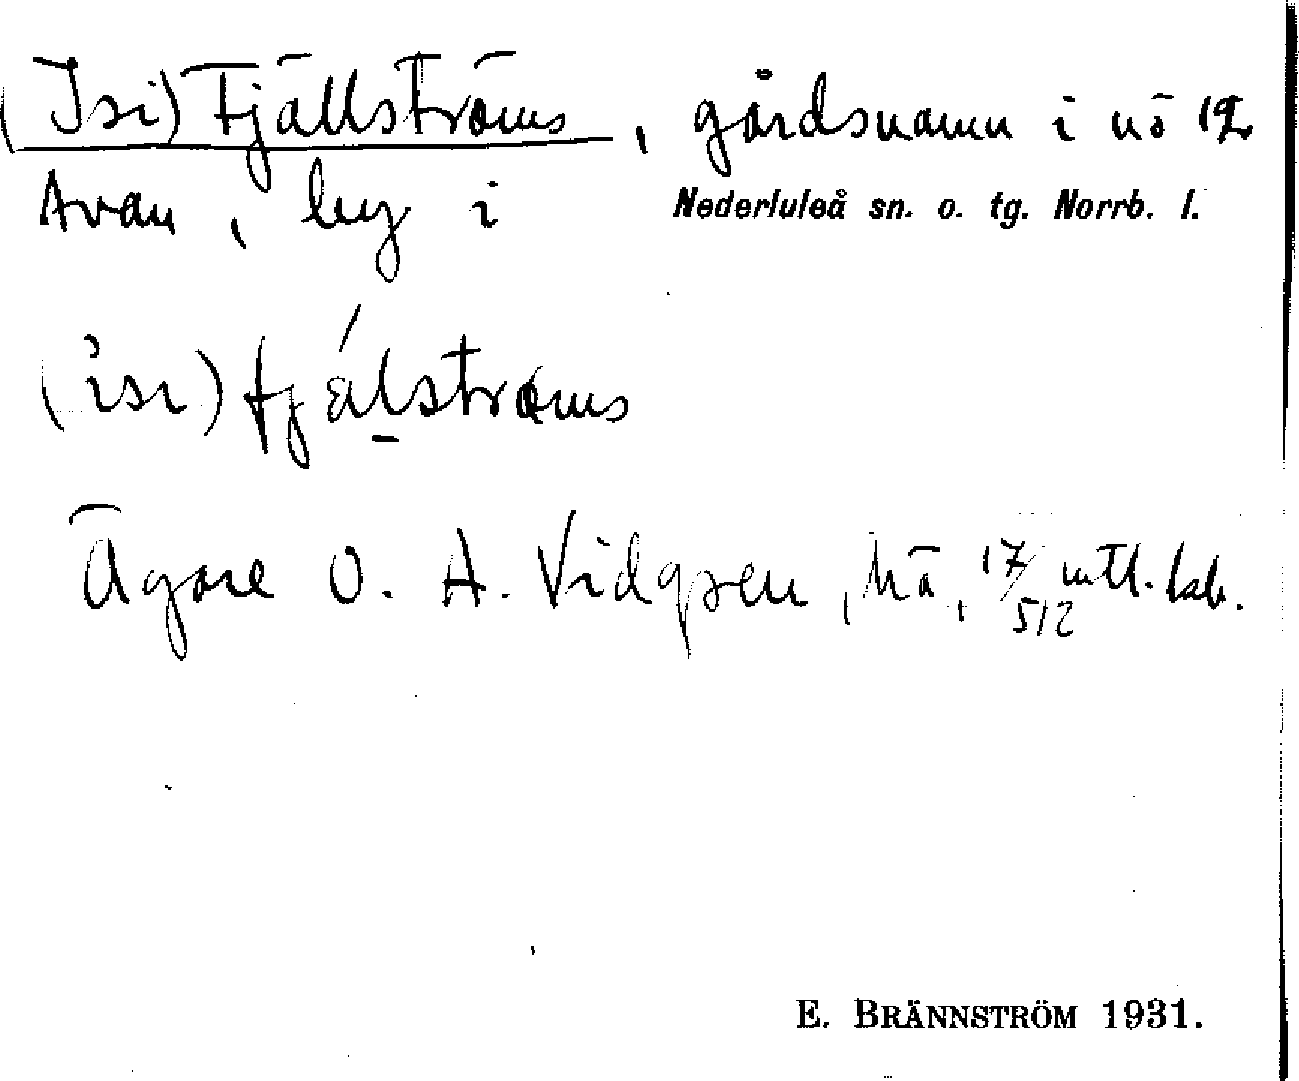 (Isi) Fjällströms, gårdsnamn i nö 12
Avan, by i Nederluleå sn. o. tg. Norrb. l.
(isi) fjälströms
Ägare O. A. Vidgren, hä, 17/512 mtl.
E. BRÄNNSTRÖM 1931.